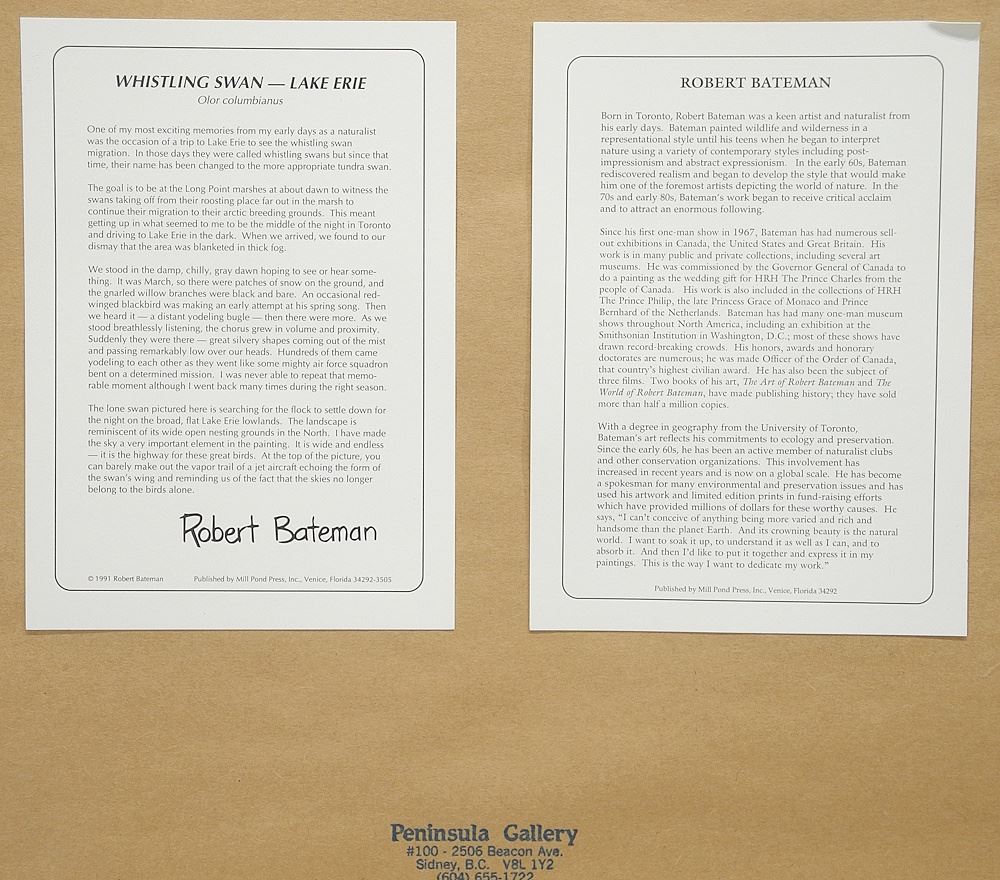 WHISTLING SWAN — LAKE ERIE
Olor columbianus
One of my most exciting memories from my early days as a naturalist
was the occasion of a trip to Lake Erie to see the whistling swan
migration. In those days they were called whistling swans but since that
time, their name has been changed to the more appropriate tundra swan.
The goal is to be at the Long Point marshes at about dawn to witness the
swans taking off from their roosting place far out in the marsh to
continue their migration to their arctic breeding grounds. This meant
getting up in what seemed to me to be the middle of the night in Toronto
and driving to Lake Erie in the dark. When we arrived, we found to our
dismay that the area was blanketed in thick fog.
We stood in the damp, chilly, gray dawn hoping to see or hear some-
thing. It was March, so there were patches of snow on the ground, and
the gnarled willow branches were black and bare. An occasional red-
winged blackbird was making an early attempt at his spring song. Then
we heard it — a distant yodeling bugle — then there were more. As we
stood breathlessly listening, the chorus grew in volume and proximity.
Suddenly they were there — great silvery shapes coming out of the mist
and passing remarkably low over our heads. Hundreds of them came
yodeling to each other as they went like some mighty air force squadron
bent on a determined mission. I was never able to repeat that memo-
rable moment although I went back many times during the right season.
The lone swan pictured here is searching for the flock to settle down for
the night on the broad, flat Lake Erie lowlands. The landscape is
reminiscent of its wide open nesting grounds in the North. I have made
the sky a very important element in the painting. It is wide and endless
— it is the highway for these great birds. At the top of the picture, you
can barely make out the vapor trail of a jet aircraft echoing the form of
the swan's wing and reminding us of the fact that the skies no longer
belong to the birds alone.
Robert Bateman
© 1991 Robert Bateman Published by Mill Pond Press, Inc., Venice, Florida 34292-3505
ROBERT BATEMAN
Born in Toronto, Robert Bateman was a keen artist and naturalist from
his early days. Bateman painted wildlife and wilderness in a
representational style until his teens when he began to interpret
nature using a variety of contemporary styles including post-
impressionism and abstract expressionism. In the early 60s, Bateman
rediscovered realism and began to develop the style that would make
him one of the foremost artists depicting the world of nature. In the
70s and early 80s, Bateman's work began to receive critical acclaim
and to attract an enormous following.
Since his first one-man show in 1967, Bateman has had numerous sell-
out exhibitions in Canada, the United States and Great Britain. His
work is in many public and private collections, including several art
museums. He was commissioned by the Governor General of Canada to
do a painting as the wedding gift for HRH The Prince Charles from the
people of Canada. His work is also included in the collections of HRH
The Prince Philip, the late Princess Grace of Monaco and Prince
Bernhard of the Netherlands. Bateman has had many one-man museum
shows throughout North America, including an exhibition at the
Smithsonian Institution in Washington, D.C.; most of these shows have
drawn record-breaking crowds. His honors, awards and honorary
doctorates are numerous; he was made Officer of the Order of Canada,
that country's highest civilian award. He has also been the subject of
three films. Two books of his art, The Art of Robert Bateman and The
World of Robert Bateman, have made publishing history; they have sold
more than half a million copies.
With a degree in geography from the University of Toronto,
Bateman's art reflects his commitments to ecology and preservation.
Since the early 60s, he has been an active member of naturalist clubs
and other conservation organizations. This involvement has
increased in recent years and is now on a global scale. He has become
a spokesman for many environmental and preservation issues and has
used his artwork and limited edition prints in fund-raising efforts
which have provided millions of dollars for these worthy causes. He
says, "I can't conceive of anything being more varied and rich and
handsome than the planet Earth. And its crowning beauty is the natural
world. I want to soak it up, to understand it as well as I can, and to
absorb it. And then I'd like to put it together and express it in my
paintings. This is the way I want to dedicate my work."
Published by Mill Pond Press, Inc., Venice, Florida 34292
Peninsula Gallery
#100 - 2506 Beacon Ave.
Sidney, B.C. V8L 1Y2
(604) 655-1722